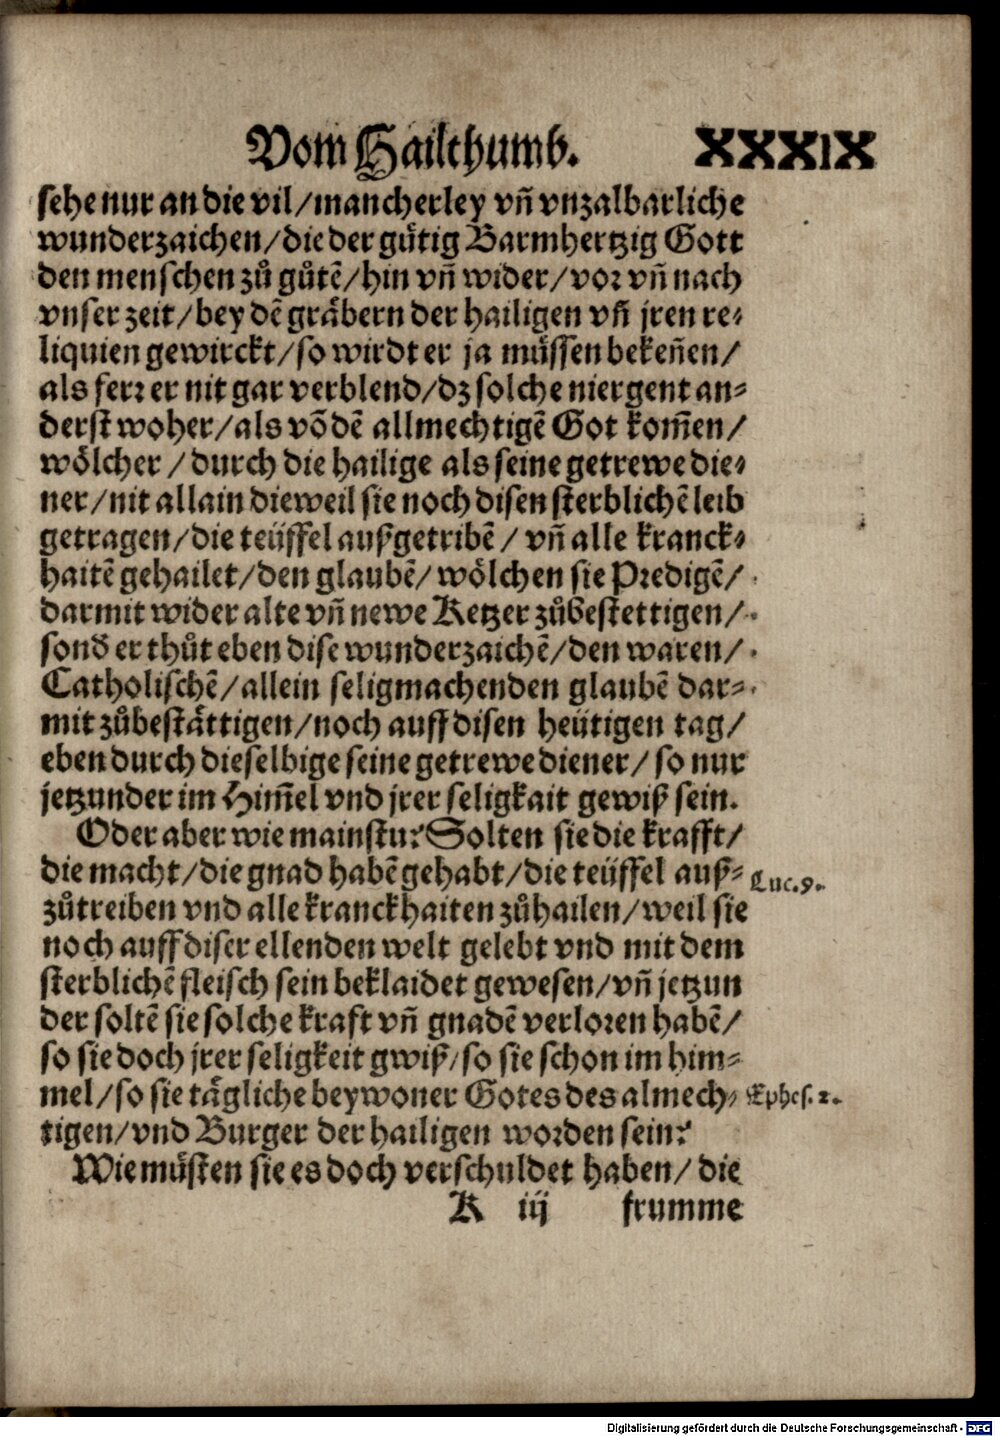 Vom Hailthumb. XXXIX
sehe nur an die vil/mancherley vñ vnzalbarliche
wunderzaichen/die der gütig Barmhertzig Gott
den menschen zů gůtẽ/hin vñ wider/vor vñ nach
vnser zeit/bey dẽ gräbern der hailigen vñ jren re-
liquien gewirckt/so wirdt er ja müssen bekeñen/
als ferr er nit gar verblend/dz solche niergent an-
derst woher/als võ dẽ allmechtigẽ Got kom̃en/
wölcher/durch die hailige als seine getrewe die-
ner/nit allain dieweil sie noch disen sterblichẽ leib
getragen/die teüffel außgetribẽ/vñ alle kranck-
haitẽ gehailet/den glaubẽ/wölchen sie Predigẽ/
darmit wider alte vñ newe Ketzer zůbestettigen/
sonđ er thůt eben dise wunderzaichẽ/den waren/
Catholischẽ/allein seligmachenden glaubẽ dar-
mit zůbestättigen/noch auff disen heütigen tag/
eben durch dieselbige seine getrewe diener/so nur
jetzunder im Him̃el vnd jrer seligkait gewiß sein.
Oder aber wie mainstu? Solten sie die krafft/
die macht/die gnad habẽ gehabt/die teüffel auß-
Luc.9.
zůtreiben vnd alle kranckhaiten zůhailen/weil sie
noch auff diser ellenden welt gelebt vnd mit dem
sterblichẽ fleisch sein beklaidet gewesen/vñ jetzun
der soltẽ sie solche kraft vñ gnadẽ verloren habẽ/
so sie doch jrer seligkeit gwiß/so sie schon im him-
mel/so sie tägliche beywoner Gotes des almech-
Ephes.2.
tigen/vnd Burger der hailigen worden sein?
Wie müsten sie es doch verschuldet haben/die
K iij frumme
Digitalisierung gefördert durch die Deutsche Forschungsgemeinschaft - DFG